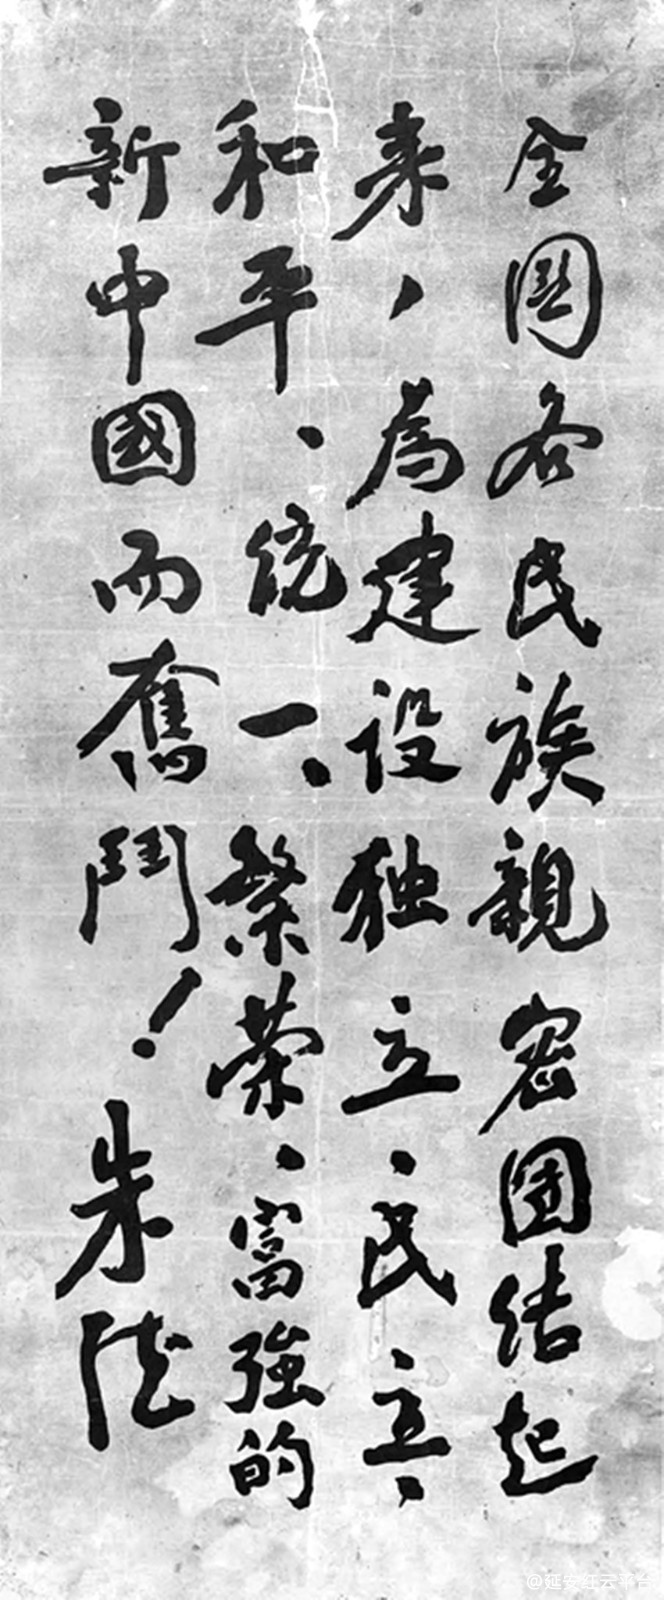 全國各民族親密团结起
来，為建设独立、民主、
和平、統一、繁荣、富強的
新中國而奮鬥！朱德
@延安红云平台